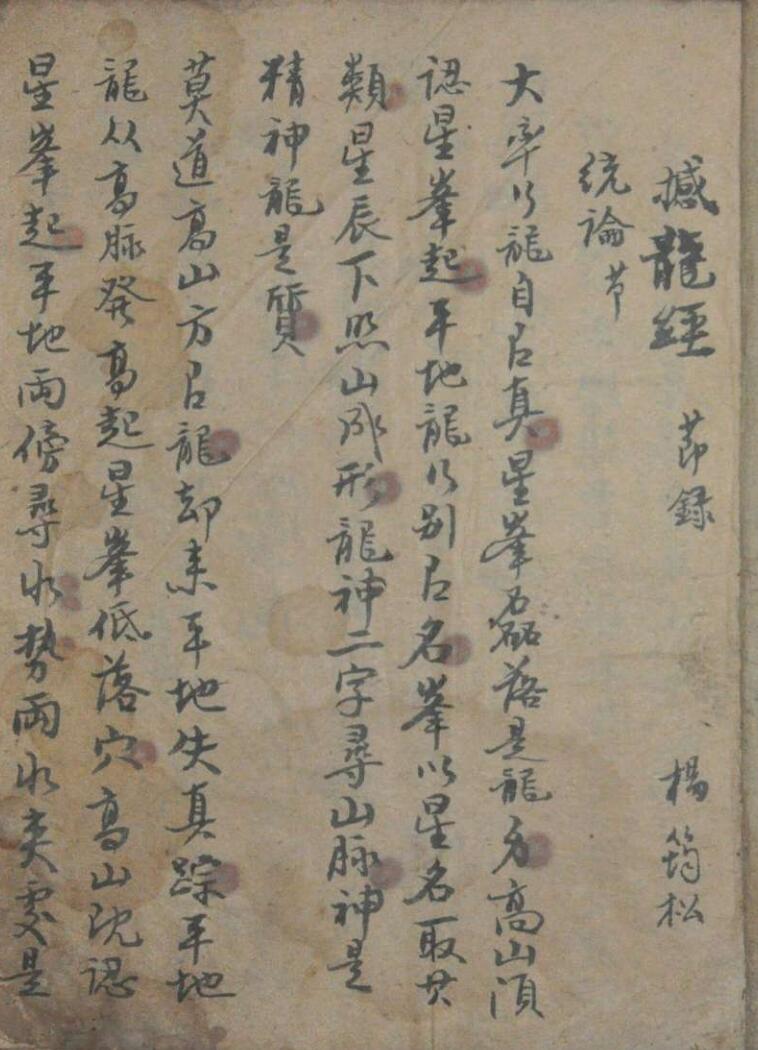 撼龍經 莭録 楊筠松
統論节
大率行龍自有真星峯磊落是龍身高山須
認星峯起平地龍行别有名峯以星名取其
類星辰下照山成形龍神二字尋山脉神是
精神龍是質
莫道高山方有龍却来平地失真踪平地
龍从高脉發高起星峯低落穴高山既認
星峯起平地兩傍尋水势兩水夾處是